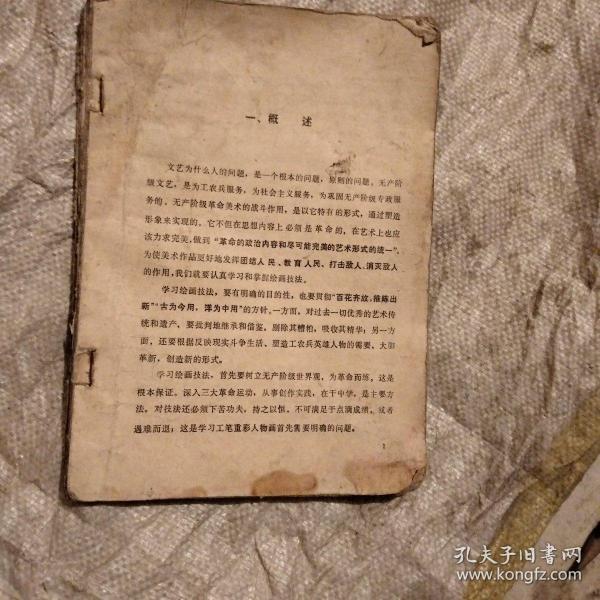 一、概 述
文艺为什么人的问题，是一个根本的问题，原则的问题。无产阶
级文艺，是为工农兵服务，为社会主义服务，为巩固无产阶级专政服
务的。无产阶级革命美术的战斗作用，是以它特有的形式，通过塑造
形象来实现的。它不但在思想内容上必须是革命的，在艺术上也应
该力求完美，做到“革命的政治内容和尽可能完美的艺术形式的统一”。
为使美术作品更好地发挥团结人民、教育人民、打击敌人、消灭敌人
的作用，我们就要认真学习和掌握绘画技法。
学习绘画技法，要有明确的目的性，也要贯彻“百花齐放，推陈出
新”“古为今用，洋为中用”的方针。一方面，对过去一切优秀的艺术传
统和遗产，要批判地继承和借鉴，剔除其糟粕，吸收其精华；另一方
面，还要根据反映现实斗争生活、塑造工农兵英雄人物的需要，大胆
革新，创造新的形式。
学习绘画技法，首先要树立无产阶级世界观，为革命而练，这是
根本保证。深入三大革命运动，从事创作实践，在干中学，是主要方
法。对技法还必须下苦功夫，持之以恒，不可满足于点滴成绩，或者
遇难而退；这是学习工笔重彩人物画首先需要明确的问题。
1
孔夫子旧书网
www.kongfz.com